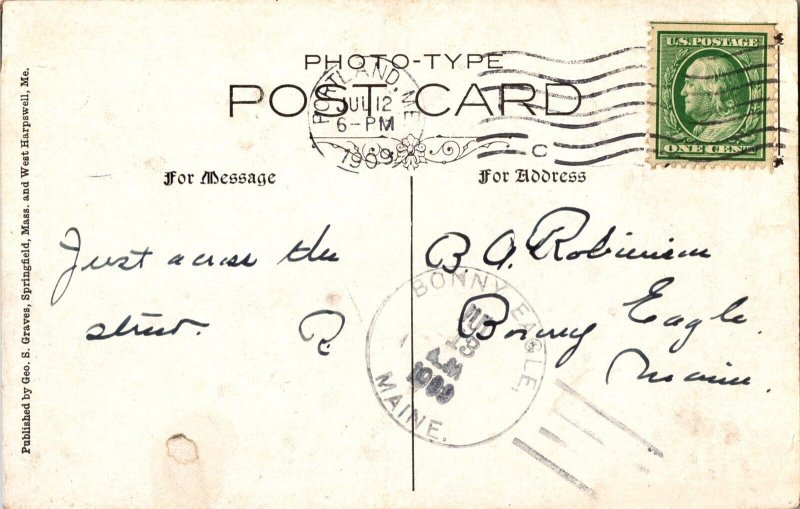 PHOTO-TYPE
POST CARD
U.S. POSTAGE
ONE CENT
PORTLAND, ME
JUL 12
6-PM
1909
C
For Message
For Address
Just across the
street. R.
B. A. Robinson
Bonny Eagle.
Maine.
BONNY EAGLE,
JUL
13
A.M
1909
MAINE.
Published by Geo. S. Graves, Springfield, Mass. and West Harpswell, Me.